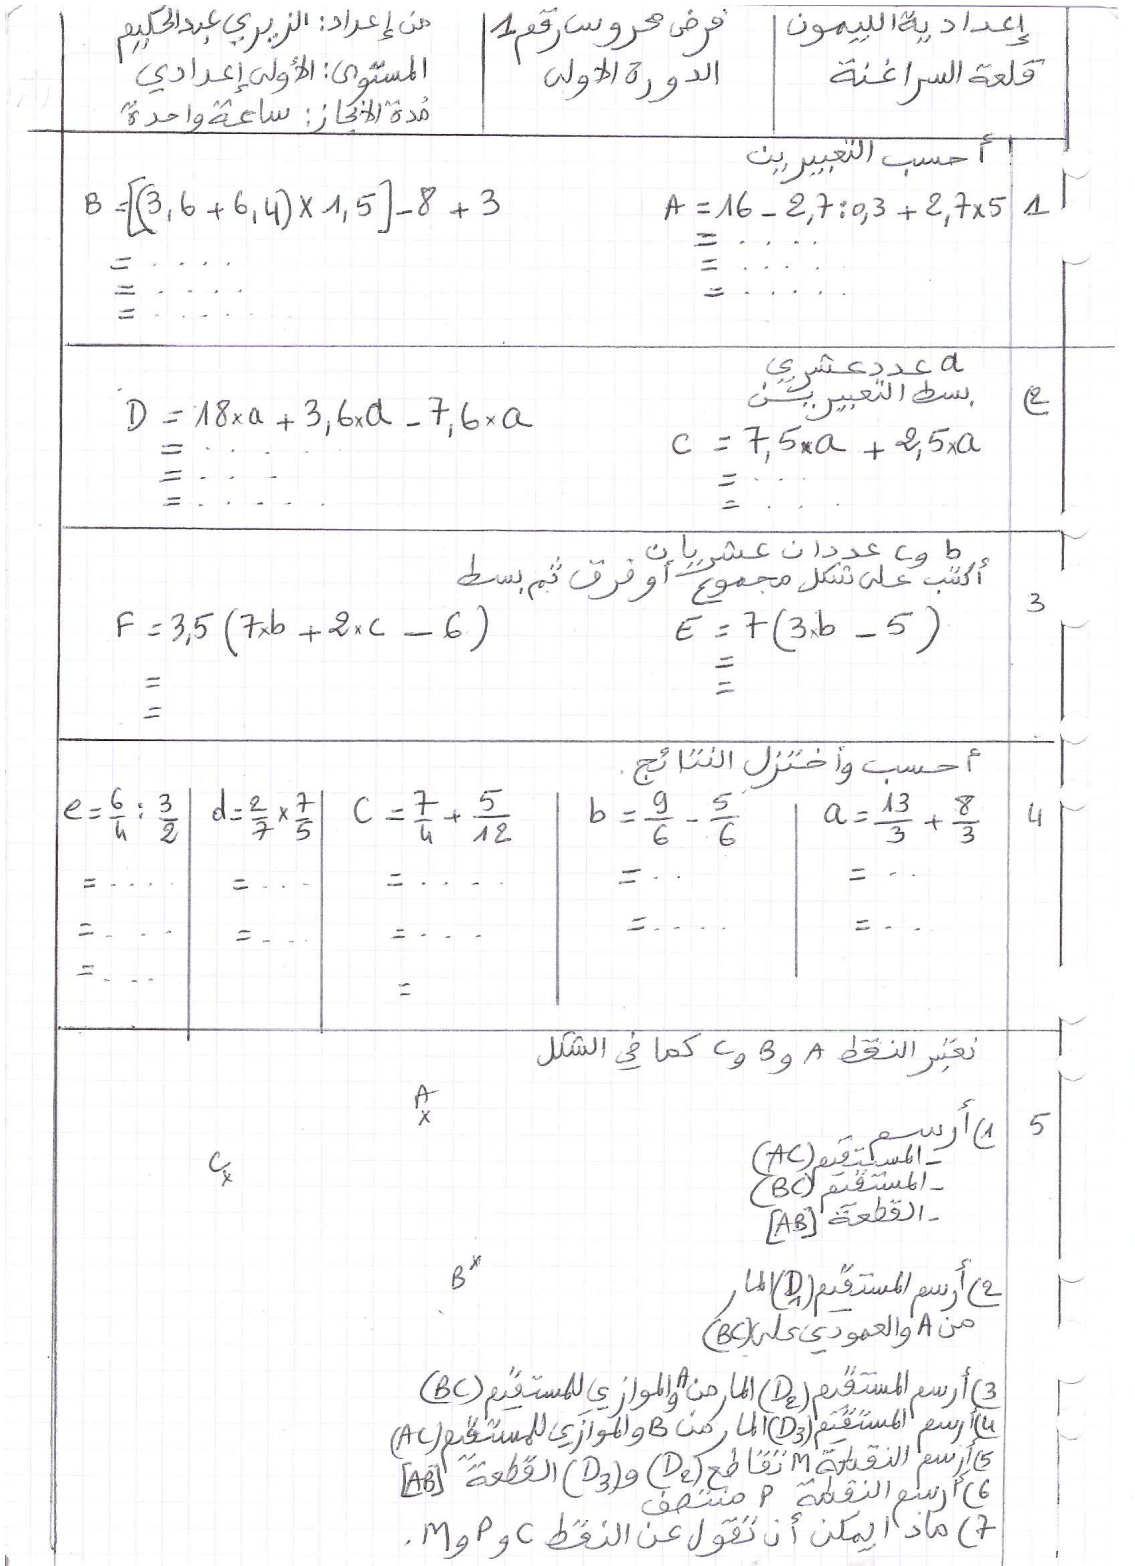 إعدادية الليمون
قلعة السراغنة
فرض محروس رقم 1
الدورة الأولى
من إعداد: الزبري عبدالحكيم
المستوى: الأولى إعدادي
مدة الانجاز: ساعة واحدة
1
أحسب التعبيرين
A = 16 - 2,7 : 0,3 + 2,7 x 5
= . . . .
= . . . . .
= . . . . .
B = [(3,6 + 6,4) x 1,5] - 8 + 3
= . . . .
= . . . .
= . . . . . .
2
a عدد عشري
بسط التعبيرين
C = 7,5 x a + 2,5 x a
= . . .
= . . .
D = 18 x a + 3,6 x a - 7,6 x a
= . . . . .
= . . . .
= . . . . .
3
b و c عددان عشريان
أكتب على شكل مجموع أو فرق ثم بسط
E = 7 (3 x b - 5)
=
=
F = 3,5 (7 x b + 2 x c - 6)
=
=
4
أحسب وأختزل النتائج.
a = 13/3 + 8/3
= . .
= . . .
b = 9/6 - 5/6
= . .
= . . . .
C = 7/4 + 5/12
= . . . . .
= . . . .
=
d = 2/7 x 7/5
= . . .
= . . .
e = 6/4 : 3/2
= . . . .
= . . . .
= . . . .
5
نعتبر النقط A و B و C كما في الشكل
A
C
B
1) أرسم
- المستقيم (AC)
- المستقيم (BC)
- القطعة [AB]
2) أرسم المستقيم (D1) المار
من A والعمودي على (BC)
3) أرسم المستقيم (D2) المار من A والموازي للمستقيم (BC)
4) أرسم المستقيم (D3) المار من B والموازي للمستقيم (AC)
5) أرسم النقطة M تقاطع (D2) و (D3)
6) أرسم النقطة P منتصف القطعة [AB]
7) ماذا يمكن أن نقول عن النقط C و P و M.